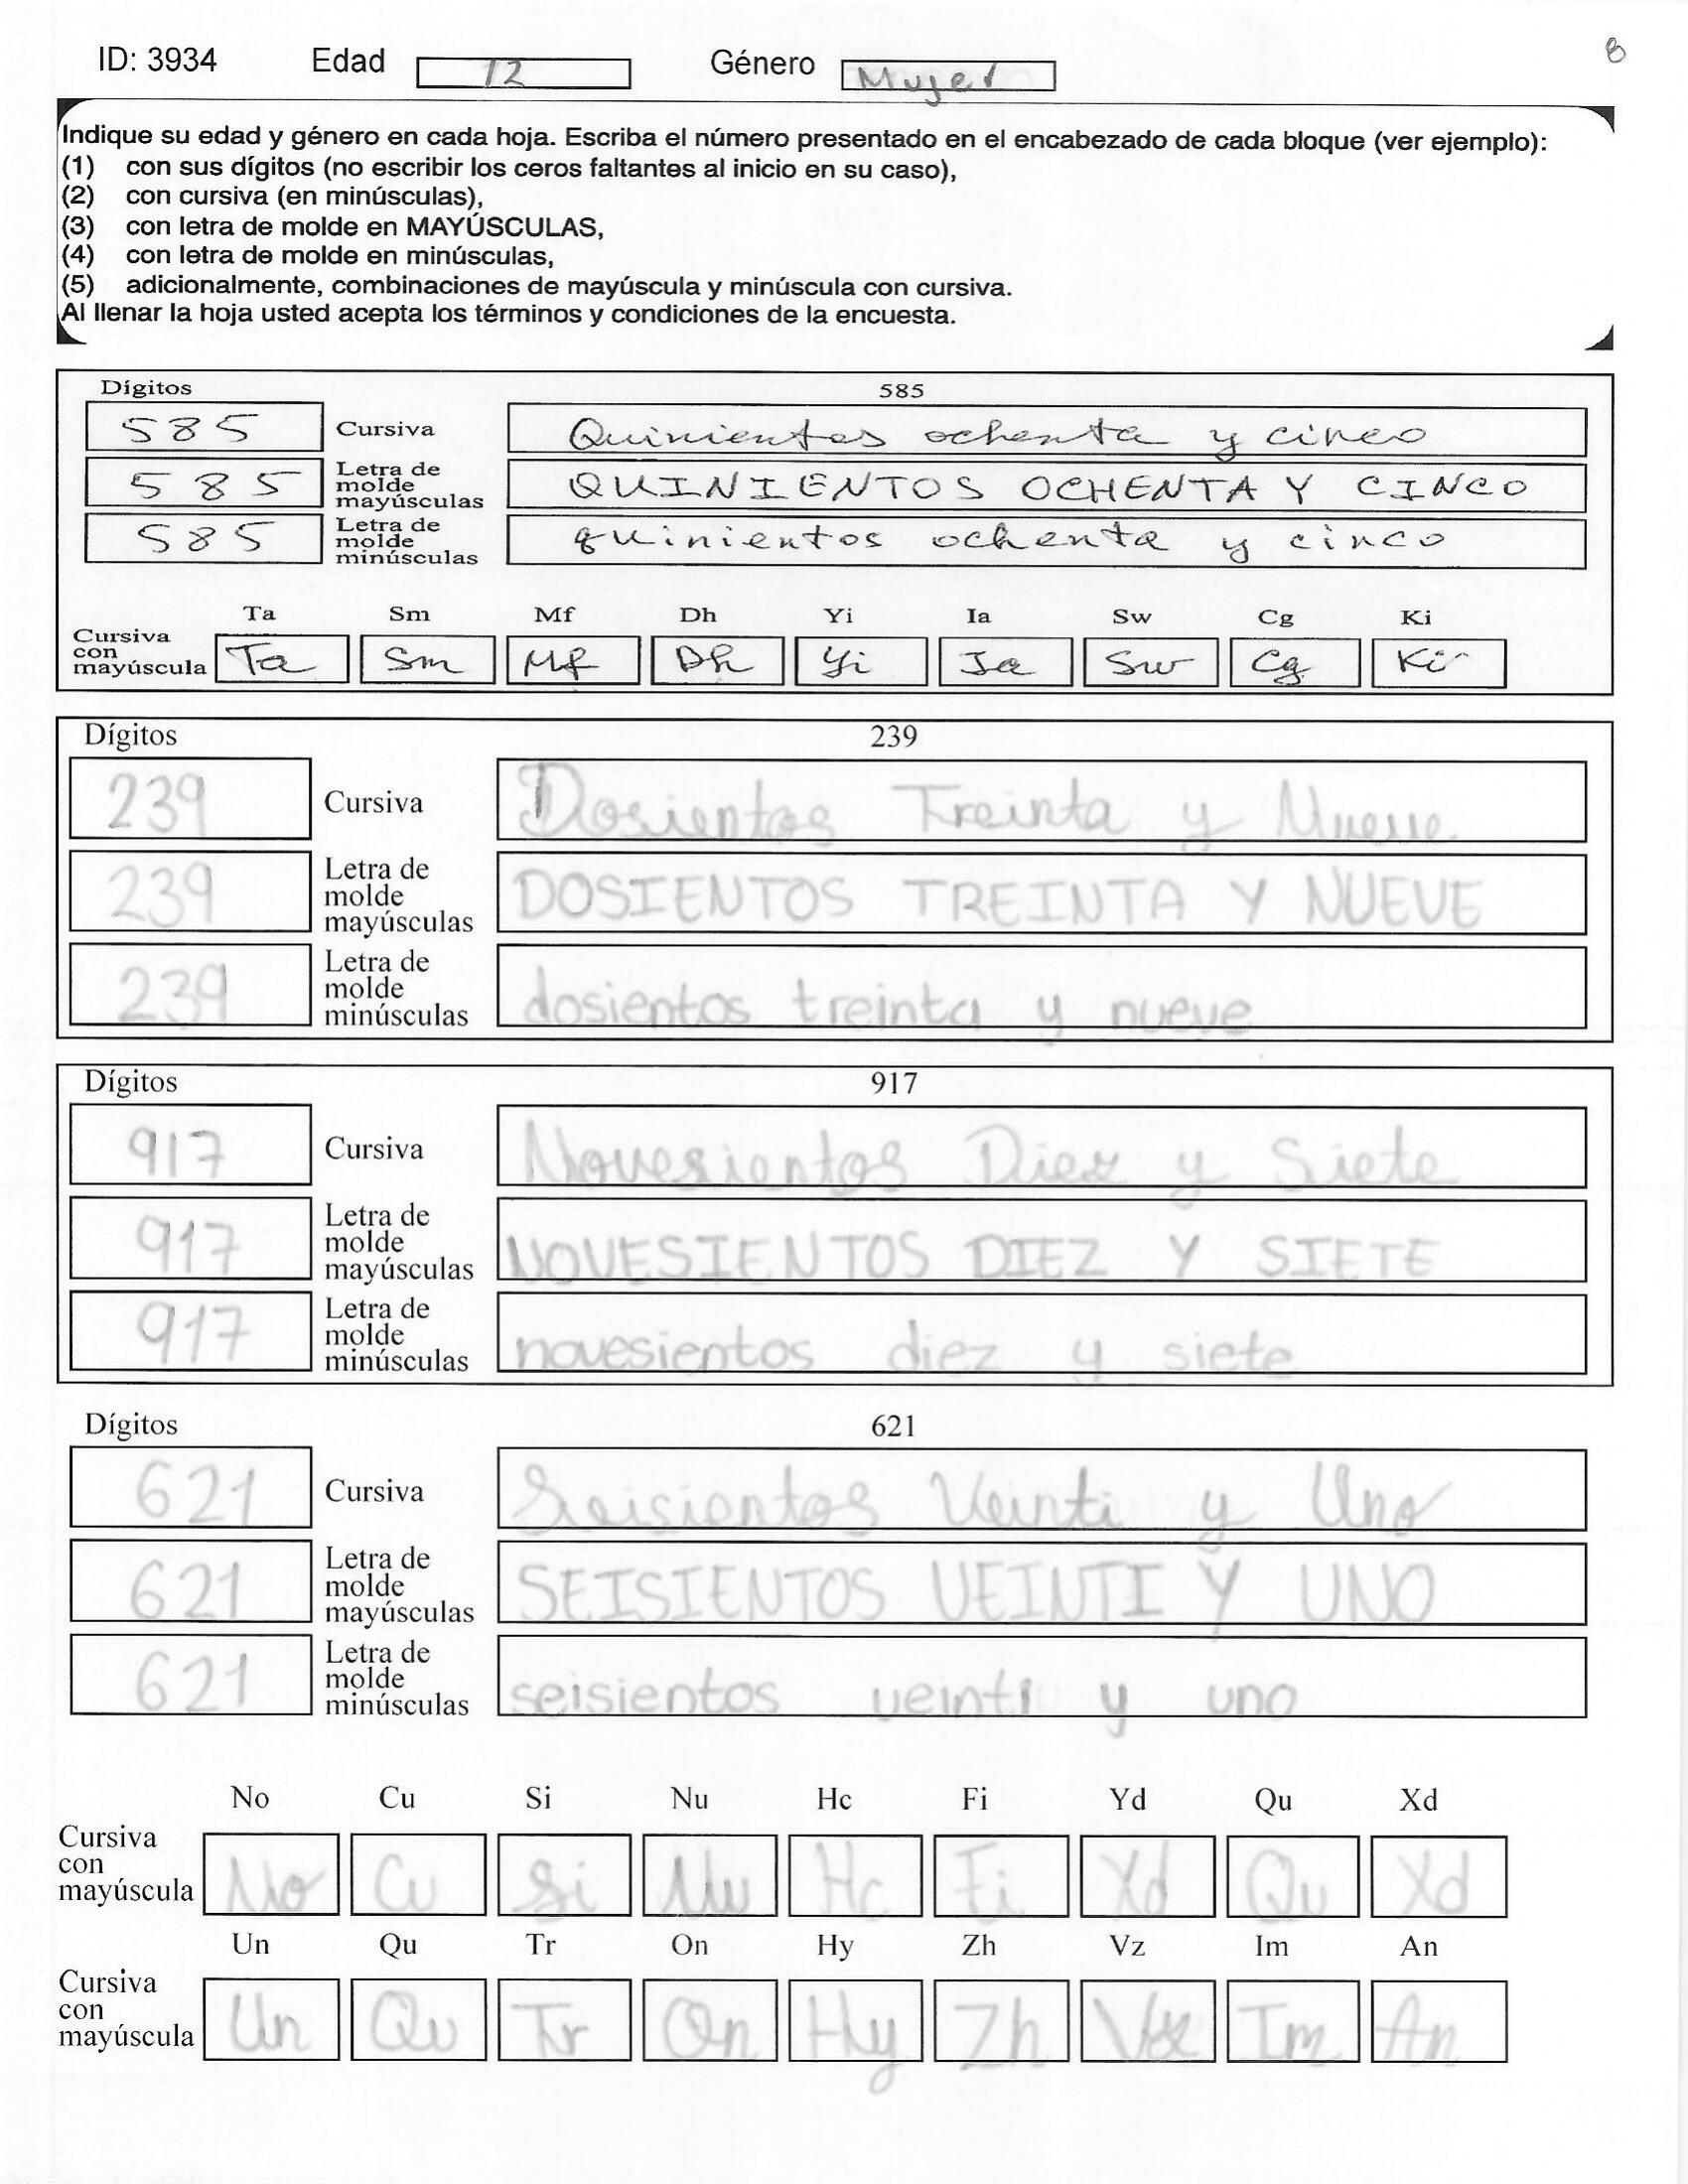 ID: 3934 Edad 12 Género Mujer 8
Indique su edad y género en cada hoja. Escriba el número presentado en el encabezado de cada bloque (ver ejemplo):
(1) con sus dígitos (no escribir los ceros faltantes al inicio en su caso),
(2) con cursiva (en minúsculas),
(3) con letra de molde en MAYÚSCULAS,
(4) con letra de molde en minúsculas,
(5) adicionalmente, combinaciones de mayúscula y minúscula con cursiva.
Al llenar la hoja usted acepta los términos y condiciones de la encuesta.
Dígitos 585
585 Cursiva Quinientos ochenta y cinco
585 Letra de molde mayúsculas QUINIENTOS OCHENTA Y CINCO
585 Letra de molde minúsculas quinientos ochenta y cinco
Ta Sm Mf Dh Yi Ia Sw Cg Ki
Cursiva con mayúscula Ta Sm Mf Dh Yi Ia Sw Cg Ki
Dígitos 239
239 Cursiva Dosientos Treinta y Nueve
239 Letra de molde mayúsculas DOSIENTOS TREINTA Y NUEVE
239 Letra de molde minúsculas dosientos treinta y nueve
Dígitos 917
917 Cursiva Novesientos Diez y Siete
917 Letra de molde mayúsculas NOVESIENTOS DIEZ Y SIETE
917 Letra de molde minúsculas novesientos diez y siete
Dígitos 621
621 Cursiva Seisientos Veinti y Uno
621 Letra de molde mayúsculas SEISIENTOS VEINTI Y UNO
621 Letra de molde minúsculas seisientos veinti y uno
No Cu Si Nu Hc Fi Yd Qu Xd
Cursiva con mayúscula No Cu Si Nu Hc Fi Yd Qu Xd
Un Qu Tr On Hy Zh Vz Im An
Cursiva con mayúscula Un Qu Tr On Hy Zh Vz Im An